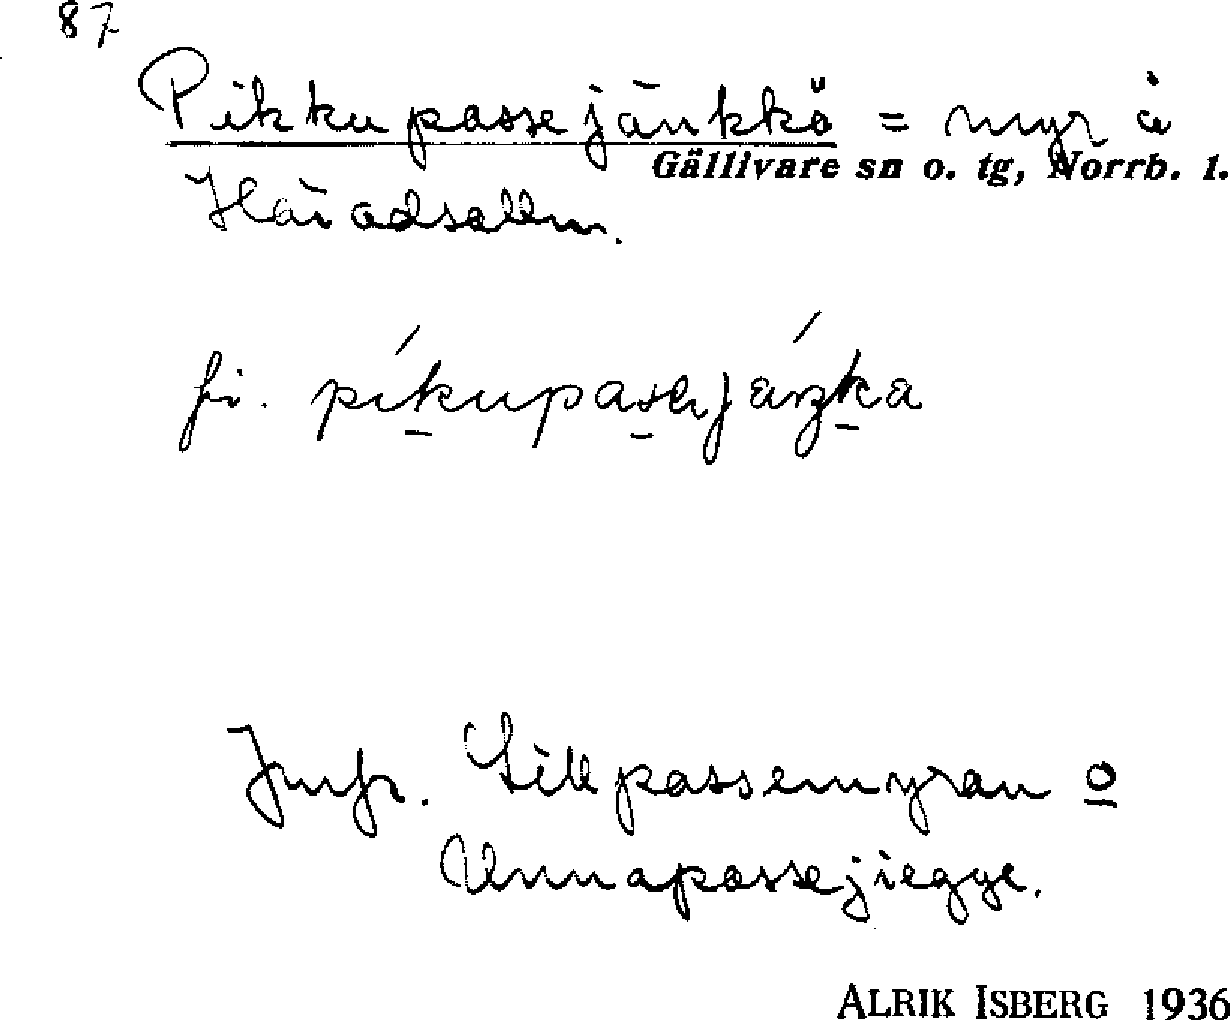 87
Pikkupassejänkkä = myr å
Gällivare sn o. tg, Norrb. l.
Häradsallm.
fi. píkupasejáŋka
Jmfr. Lillpassemyran o
Unnapassejiegge.
ALRIK ISBERG 1936